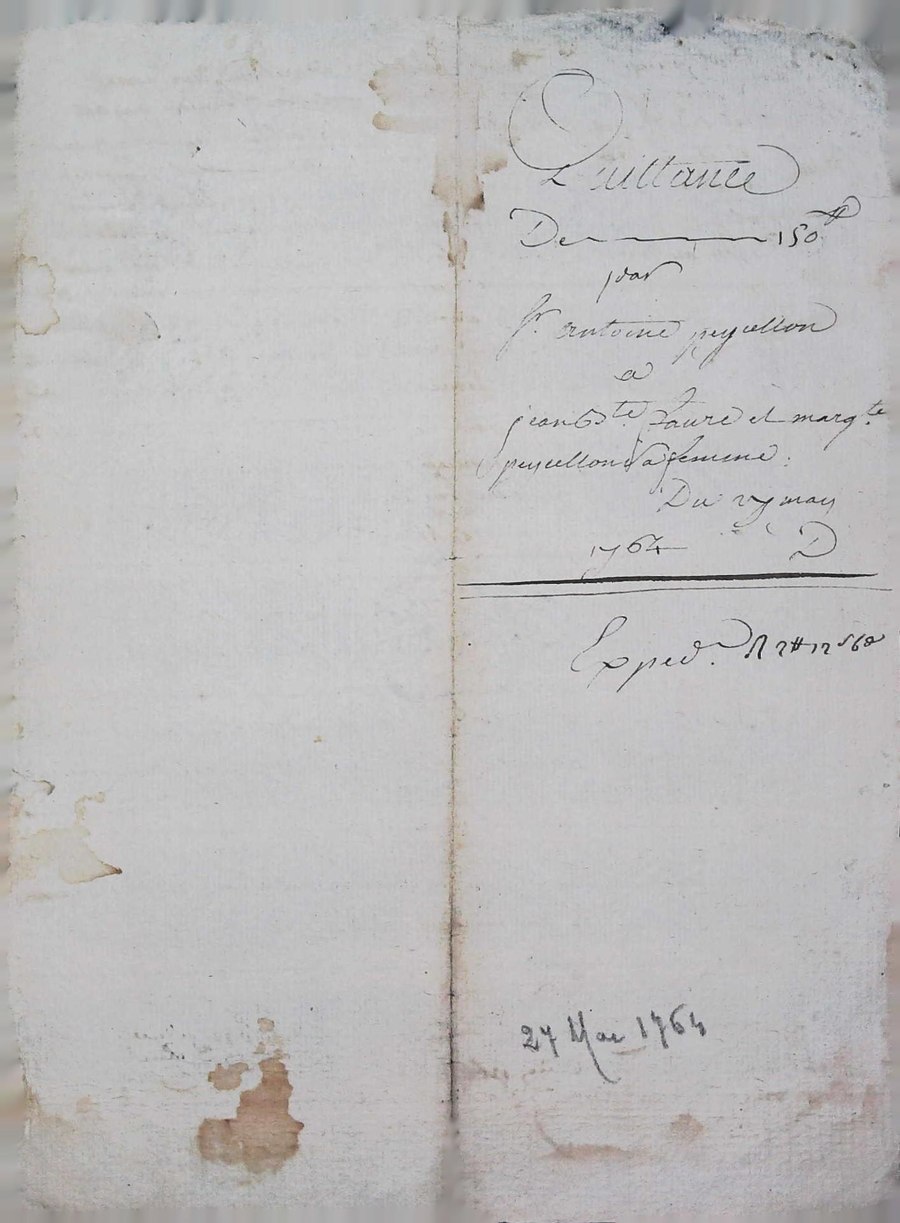 Quittance
De 150ᵗᵗ
par
Sr. antoine peycellon
a
jean Bte. faure et margte.
peycellon sa femme.
Du 27 may
1764 D
Exped.
27 Mai 1764